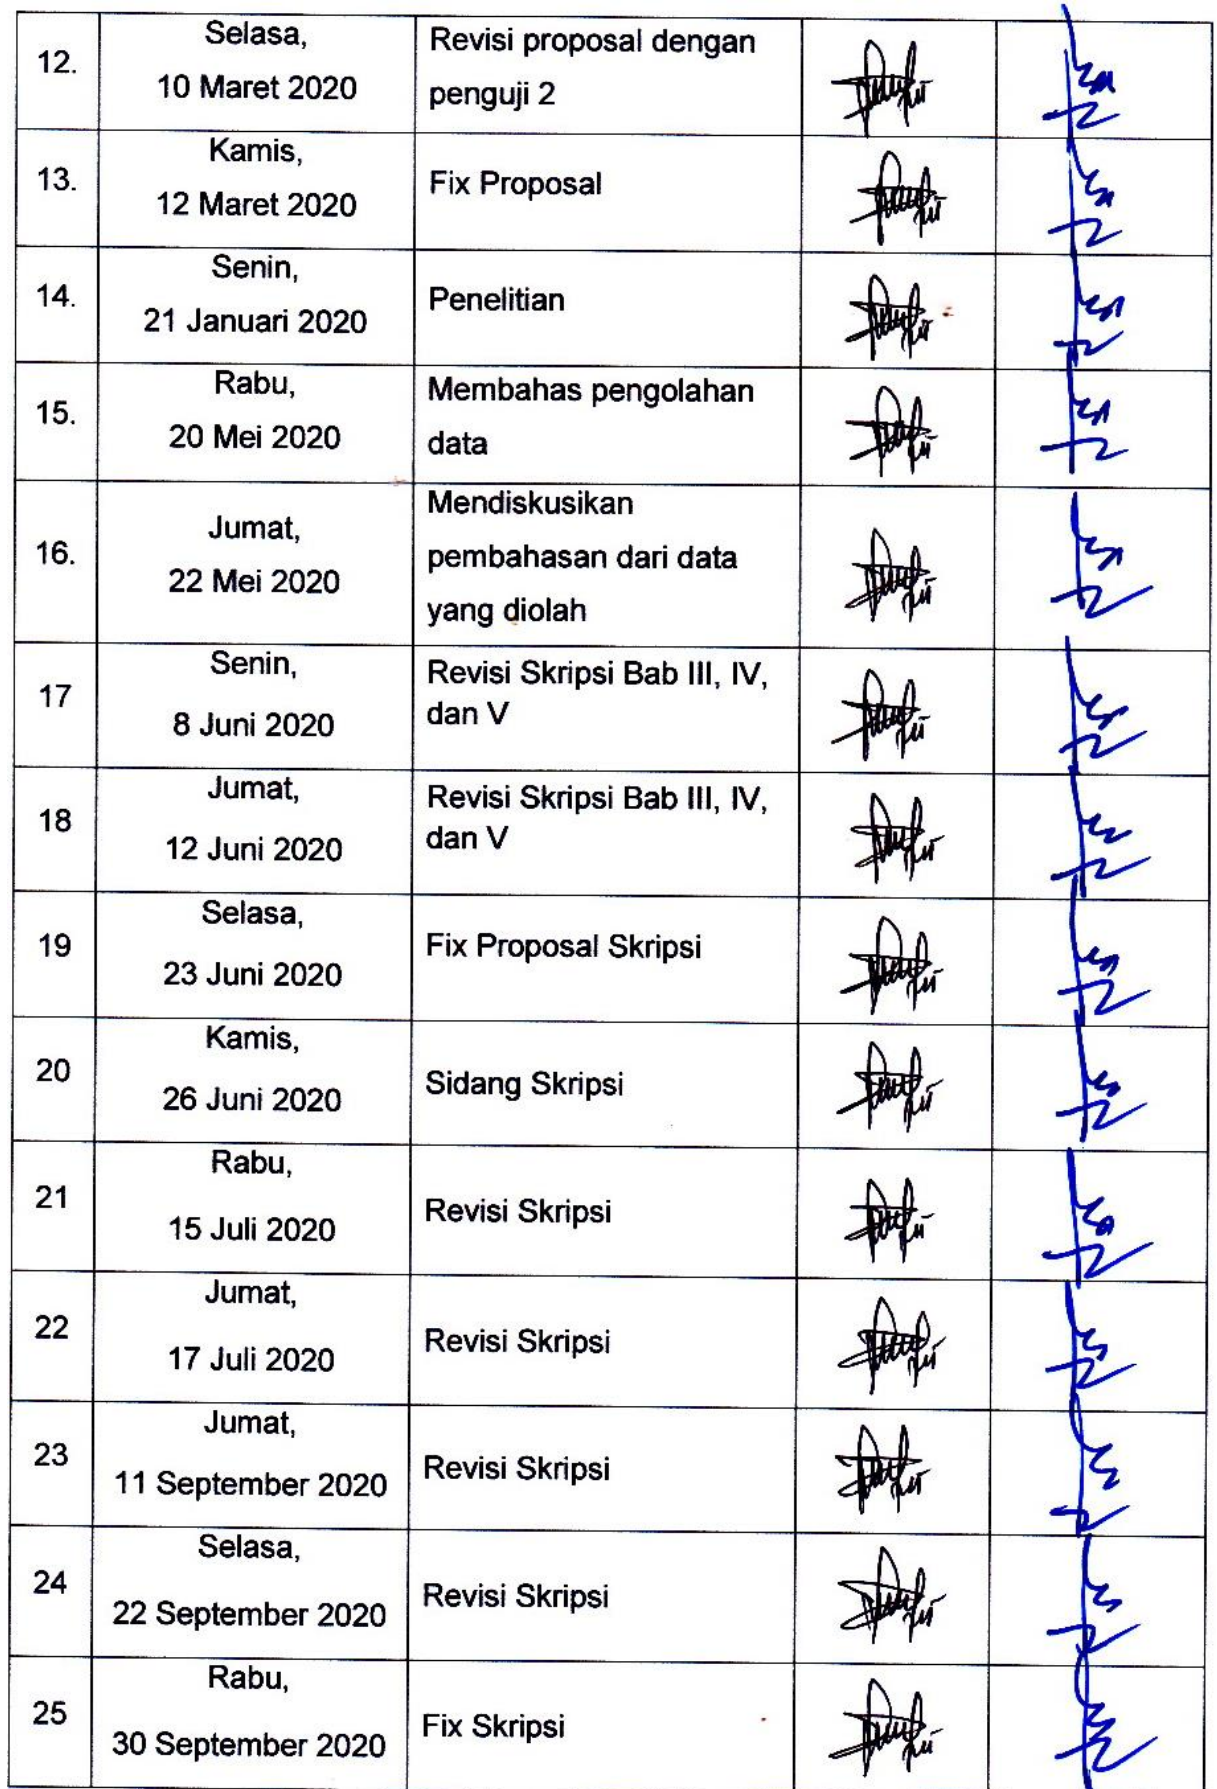 12.
Selasa,
10 Maret 2020
Revisi proposal dengan
penguji 2
13.
Kamis,
12 Maret 2020
Fix Proposal
14.
Senin,
21 Januari 2020
Penelitian
15.
Rabu,
20 Mei 2020
Membahas pengolahan
data
16.
Jumat,
22 Mei 2020
Mendiskusikan
pembahasan dari data
yang diolah
17
Senin,
8 Juni 2020
Revisi Skripsi Bab III, IV,
dan V
18
Jumat,
12 Juni 2020
Revisi Skripsi Bab III, IV,
dan V
19
Selasa,
23 Juni 2020
Fix Proposal Skripsi
20
Kamis,
26 Juni 2020
Sidang Skripsi
21
Rabu,
15 Juli 2020
Revisi Skripsi
22
Jumat,
17 Juli 2020
Revisi Skripsi
23
Jumat,
11 September 2020
Revisi Skripsi
24
Selasa,
22 September 2020
Revisi Skripsi
25
Rabu,
30 September 2020
Fix Skripsi